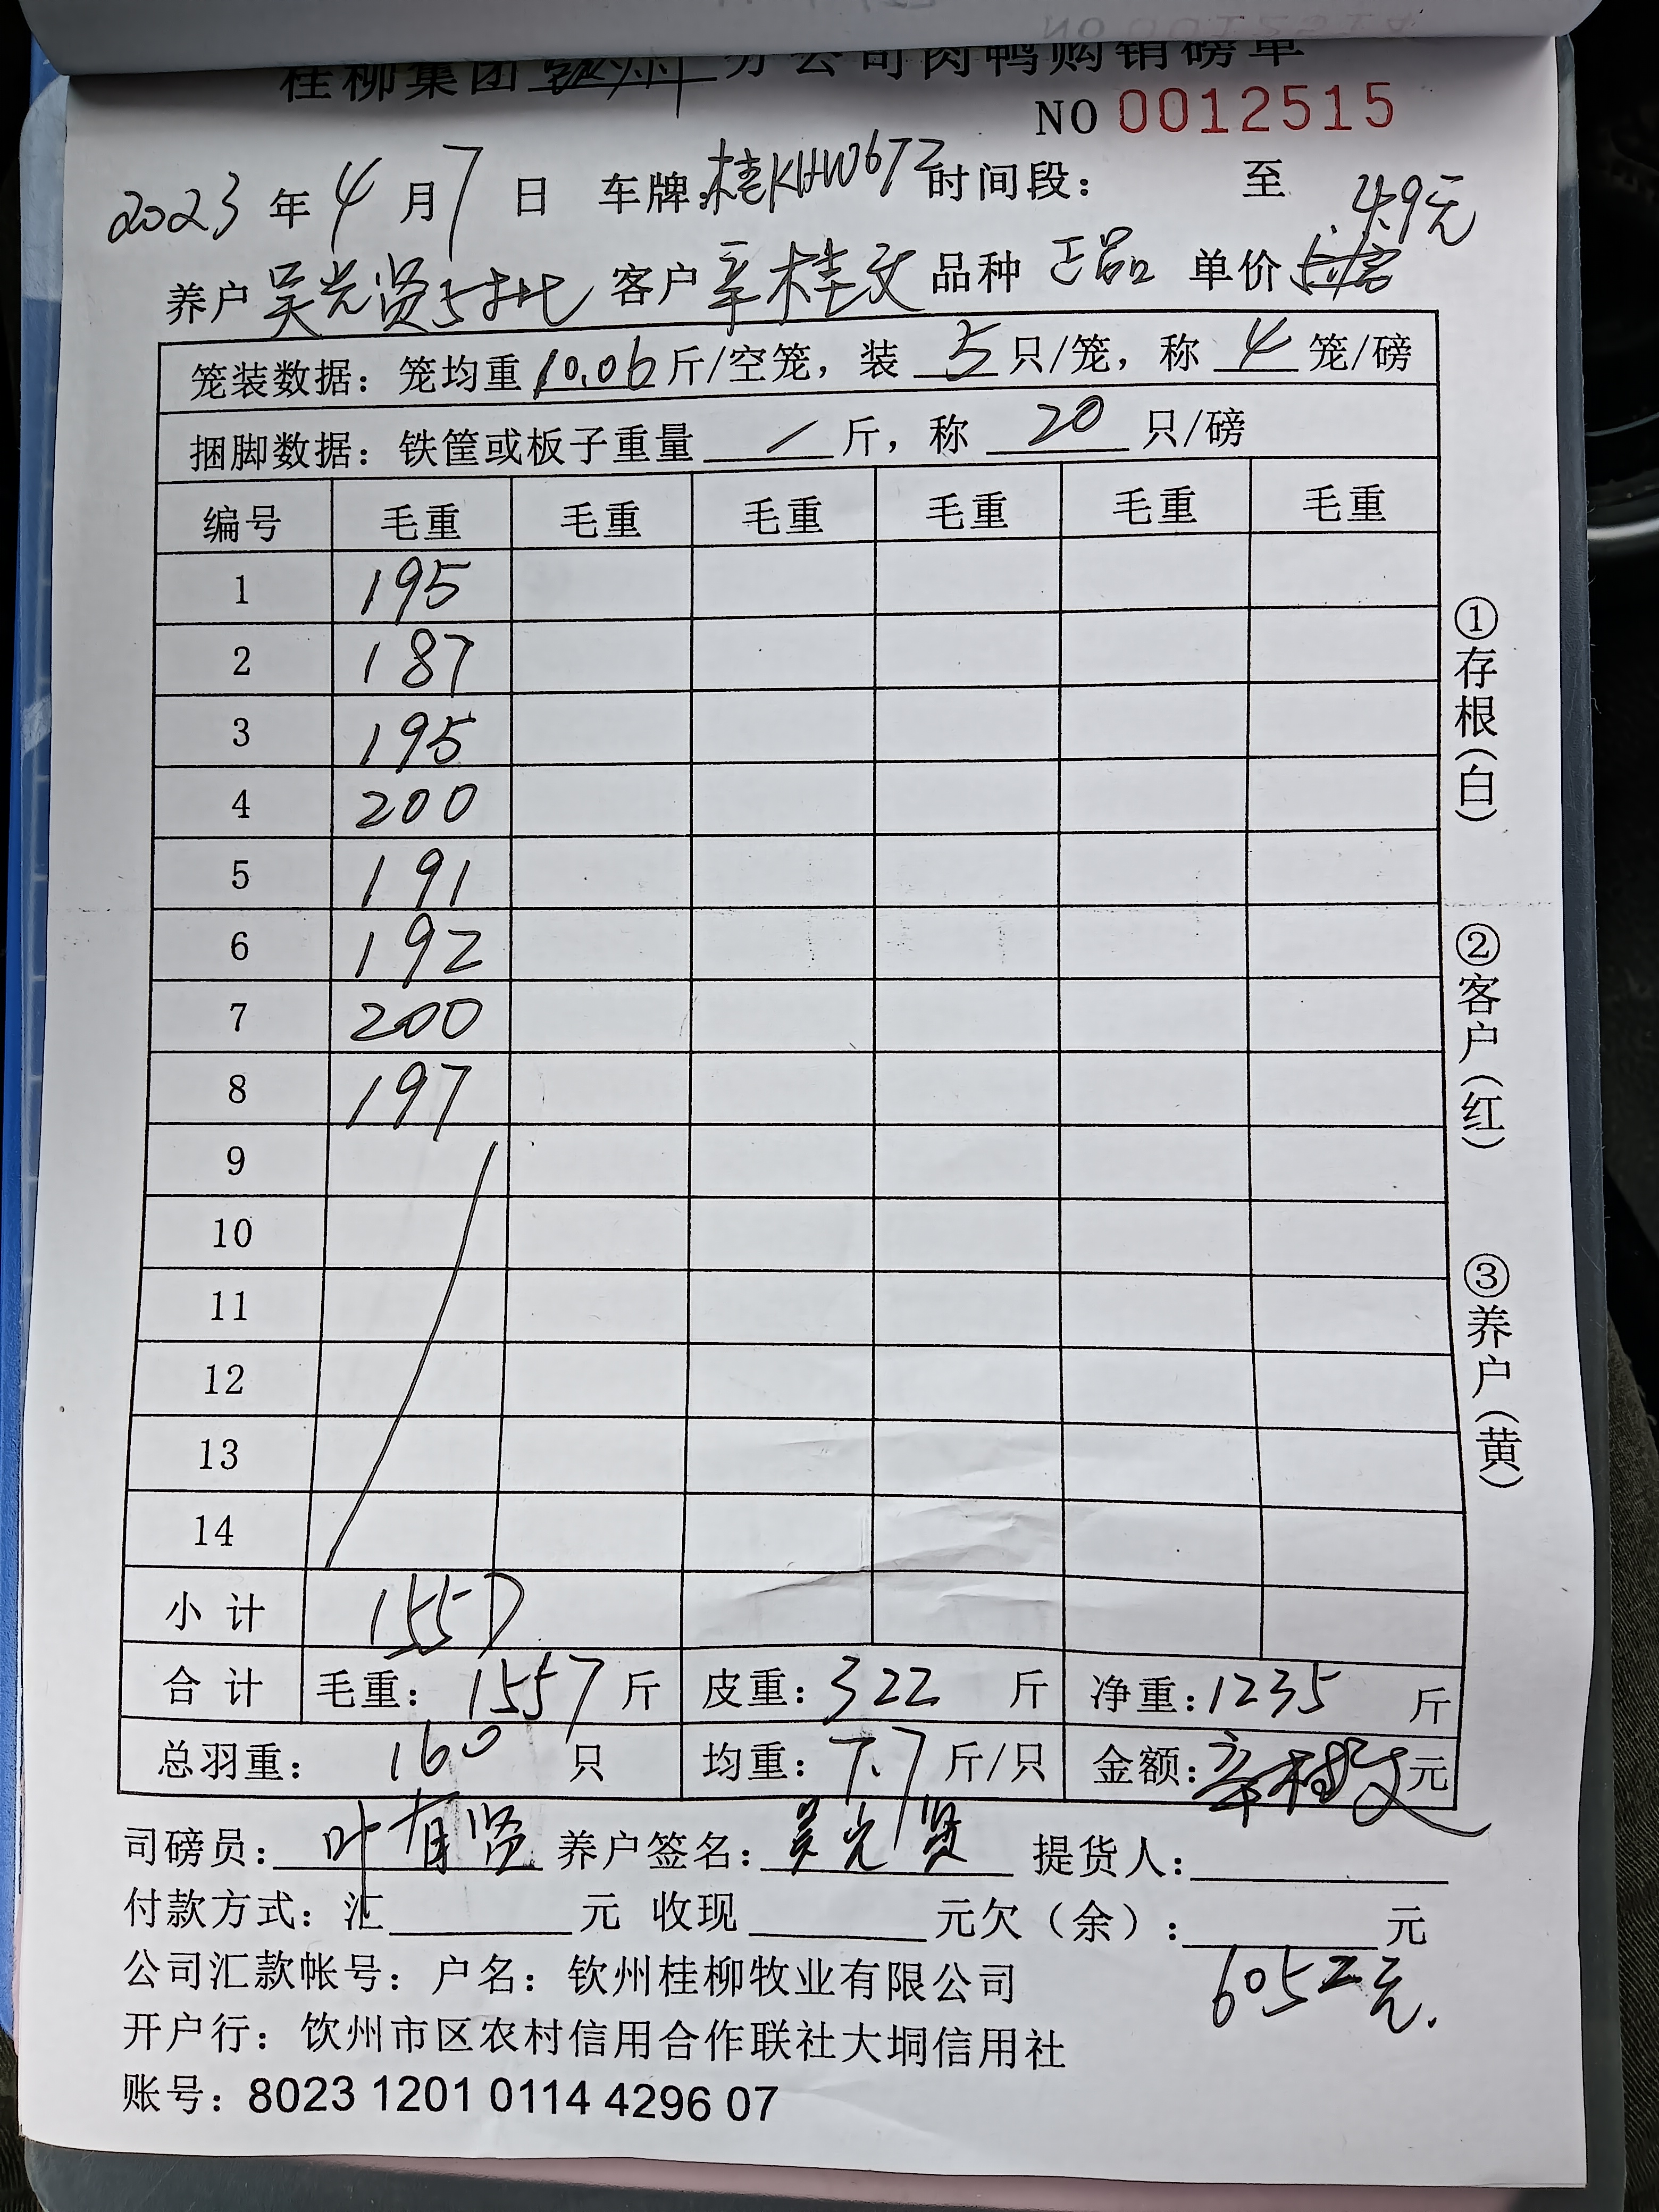 桂柳集团钦州分公司肉鸭购销磅单
NO 0012515
2023年4月7日 车牌:桂KHW672 时间段: 至
4.9元
养户 吴光贤5批 客户 辛桂文 品种 正品 单价
笼装数据:笼均重10.06斤/空笼,装5只/笼,称4笼/磅
捆脚数据:铁筐或板子重量/斤,称20只/磅
编号 毛重 毛重 毛重 毛重 毛重 毛重
1 195
2 187
3 195
4 200
5 191
6 192
7 200
8 197
9
10
11
12
13
14
小计 1557
合计 毛重:1557斤 皮重:322斤 净重:1235斤
总羽重:160只 均重:7.7斤/只 金额:辛桂文元
司磅员:叶有贤 养户签名:吴光贤 提货人:
付款方式:汇 元 收现 元欠(余): 元
6052元.
公司汇款帐号:户名:钦州桂柳牧业有限公司
开户行:钦州市区农村信用合作联社大垌信用社
账号:8023 1201 0114 4296 07
①存根(白)
②客户(红)
③养户(黄)